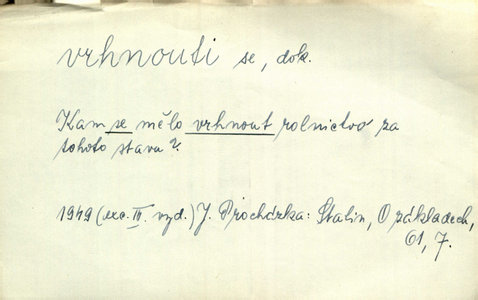 vrhnouti se, dok.
Kam se mělo vrhnout rolnictvo za
tohoto stavu?
1949 (exc. III. vyd.) J. Procházka: Stalin, O základech,
61, 7.